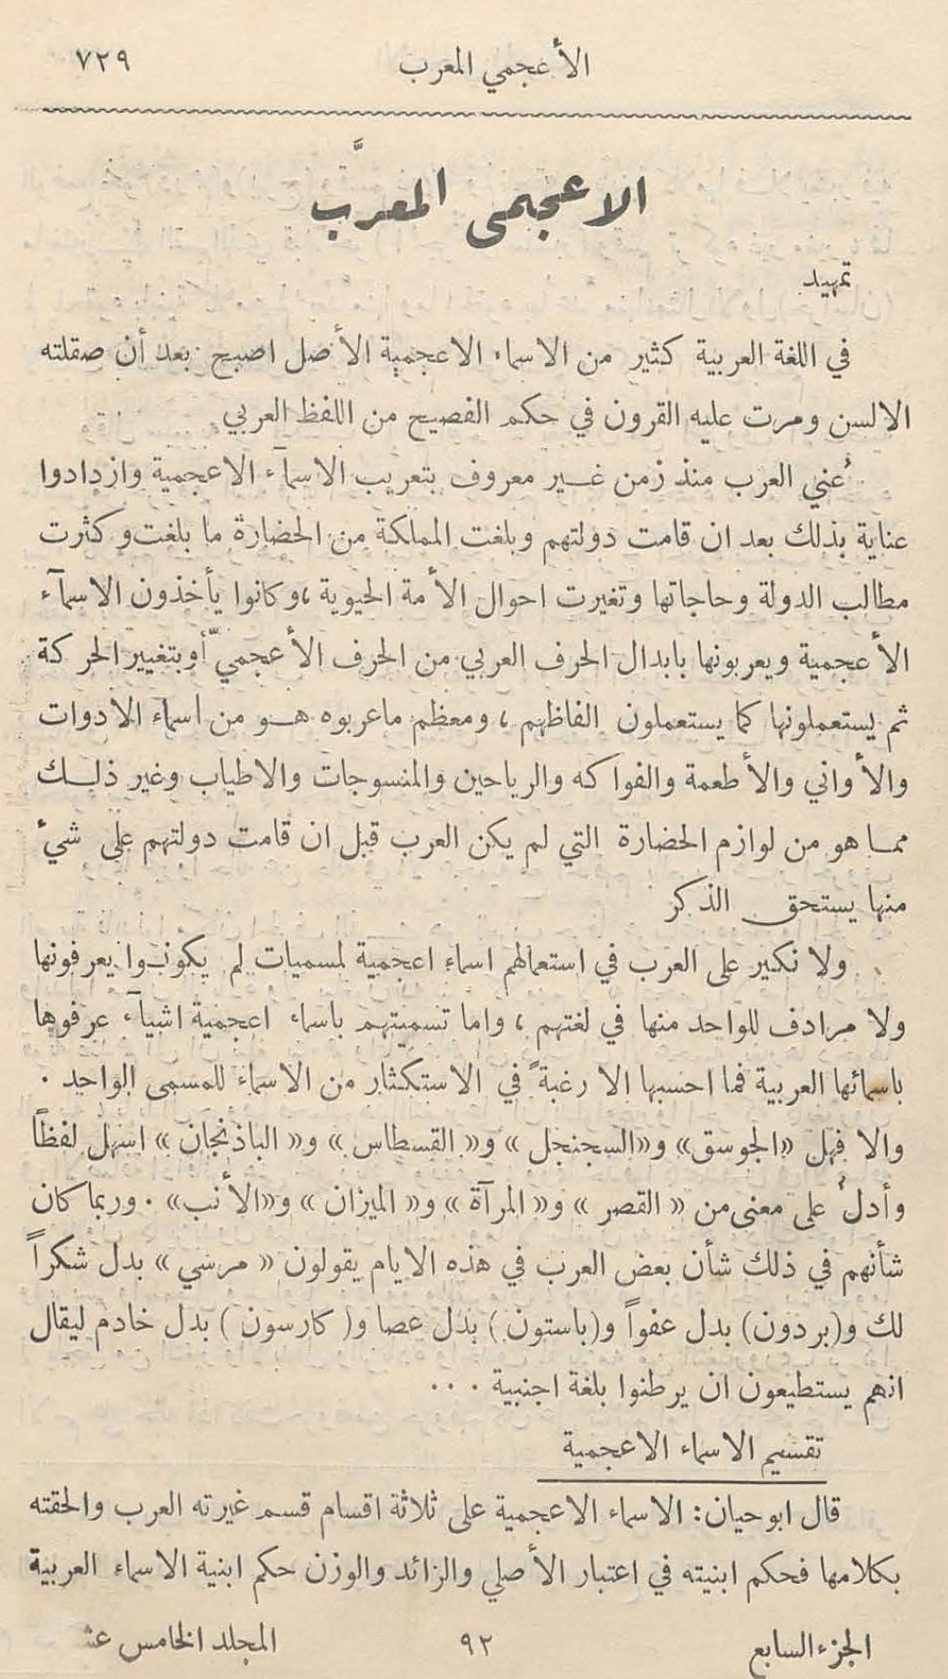 الأعجمي المعرب
٧٢٩
الاعجمى المعرَّب
تمهيد
في اللغة العربية كثير من الاسماء الاعجمية الأصل اصبح بعد أن صقلته
الالسن ومرت عليه القرون في حكم الفصيح من اللفظ العربي
عُني العرب منذ زمن غير معروف بتعريب الاسمآء الاعجمية وازدادوا
عناية بذلك بعد ان قامت دولتهم وبلغت المملكة من الحضارة ما بلغت وكثرت
مطالب الدولة وحاجاتها وتغيرت احوال الأمة الحيوية ، وكانوا يأخذون الاسمآء
الأعجمية ويعربونها بابدال الحرف العربي من الحرف الأعجميّ أو بتغيير الحركة
ثم يستعملونها كما يستعملون الفاظهم ، ومعظم ماعربوه هو من اسماء الادوات
والأواني والأطعمة والفواكه والرياحين والمنسوجات والاطياب وغير ذلك
مما هو من لوازم الحضارة التي لم يكن العرب قبل ان قامت دولتهم على شيء
منها يستحق الذكر
ولا نكير على العرب في استعمالهم اسماء اعجمية لمسميات لم يكونوا يعرفونها
ولا مرادف للواحد منها في لغتهم ، واما تسميتهم باسماء اعجمية اشيآء عرفوها
باسمائها العربية فما احسبها الا رغبةً في الاستكثار من الاسماء للمسمى الواحد .
والا فهل «الجوسق» و«السجنجل» و« القسطاس » و« الباذنجان » اسهل لفظاً
وأدلُ على معنى من « القصر » و« المرآة » و« الميزان » و«الأنب» . وربما كان
شأنهم في ذلك شأن بعض العرب في هذه الايام يقولون « مرسي » بدل شكراً
لك و(بردون) بدل عفواً و(باستون) بدل عصا و( كارسون ) بدل خادم ليقال
انهم يستطيعون ان يرطنوا بلغة اجنبية . . .
تقسيم الاسماء الاعجمية
قال ابو حيان: الاسماء الاعجمية على ثلاثة اقسام قسم غيرته العرب والحقته
بكلامها فحكم ابنيته في اعتبار الأصلي والزائد والوزن حكم ابنية الاسماء العربية
الجزء السابع
٩٢
المجلد الخامس عش